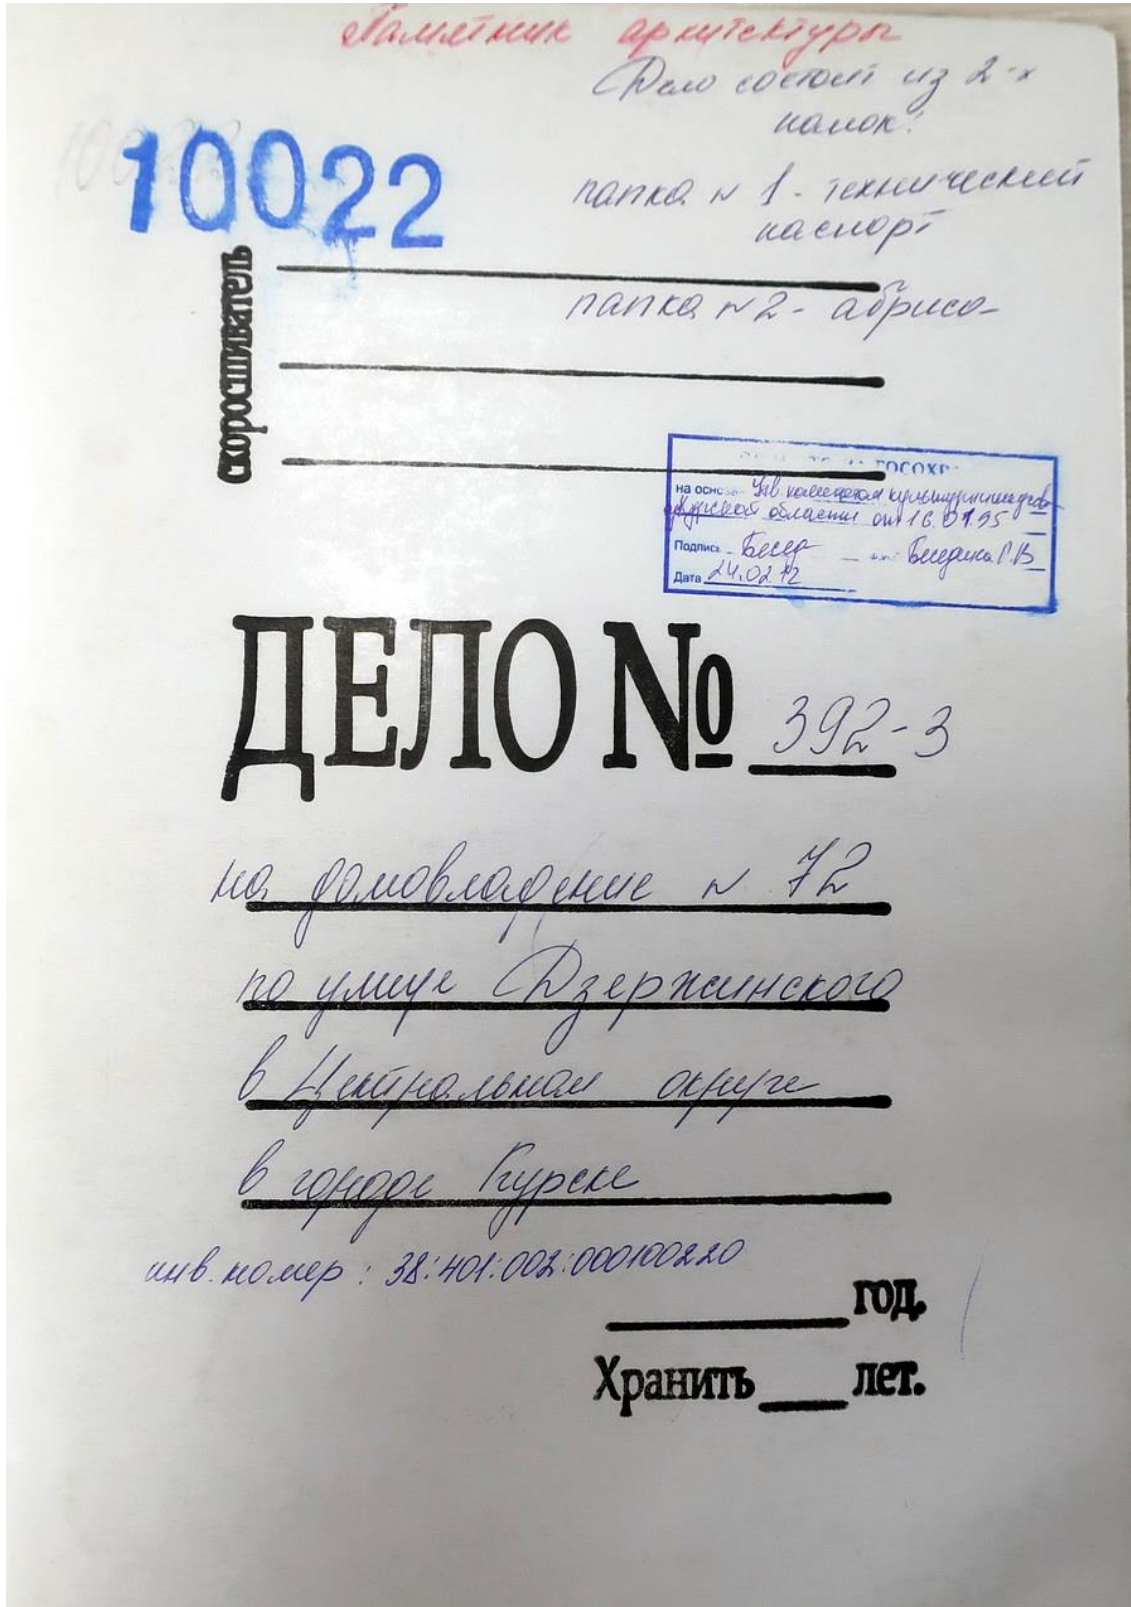 Памятник архитектуры
Дело состоит из 2-х
папок:
10022
папка N 1 - технический
паспорт
скоросшиватель
папка N 2 - абриса
ГОСОХР
на осно Утв. комитетом культуры
Курской области от 16.01.95
Подпись Бесед Беседина Г.В
Дата 24.02.12
ДЕЛО № 392-3
на домовладение N 72
по улице Дзержинского
в Центральном округе
в городе Курске
инв. номер : 38:401:002:000100220
год.
Хранить лет.